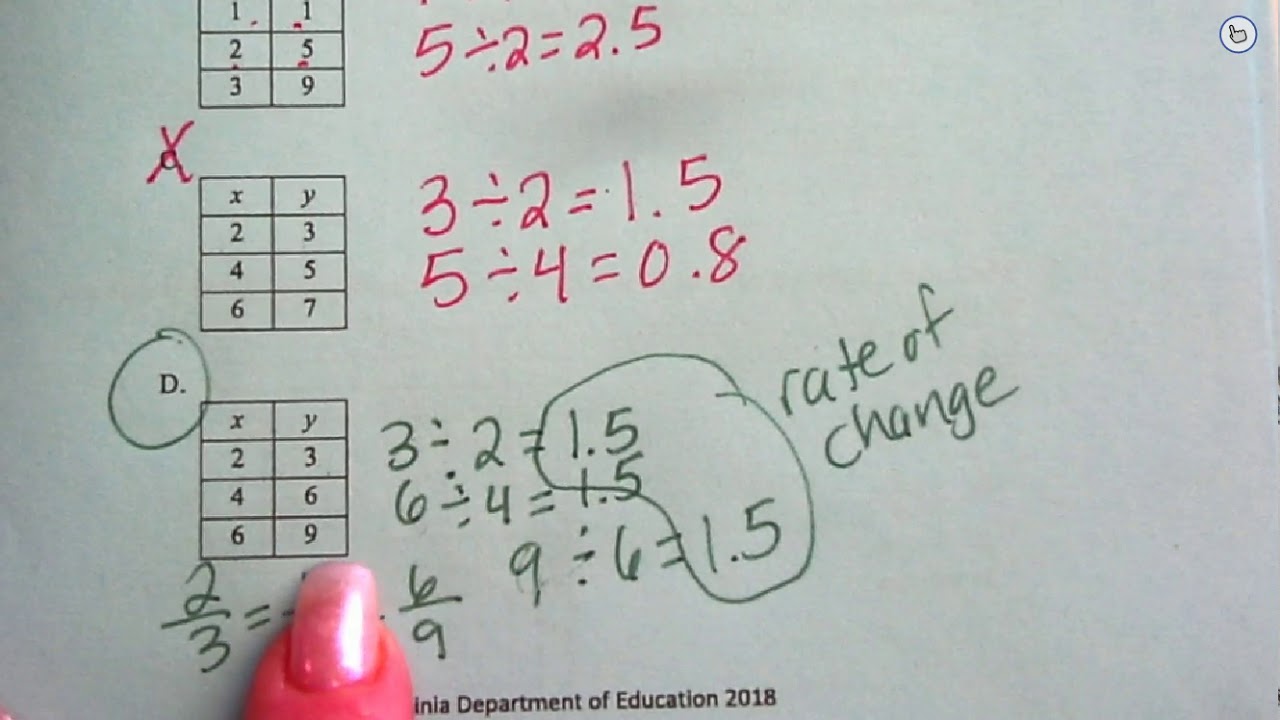 1 1
5÷2=2.5
2 5
3 9
x y
3÷2=1.5
2 3
5÷4=0.8
4 5
6 7
rate of
change
D.
x y
3÷2=1.5
2 3
6÷4=1.5
4 6
9÷6=1.5
6 9
2/3= 6/9
inia Department of Education 2018